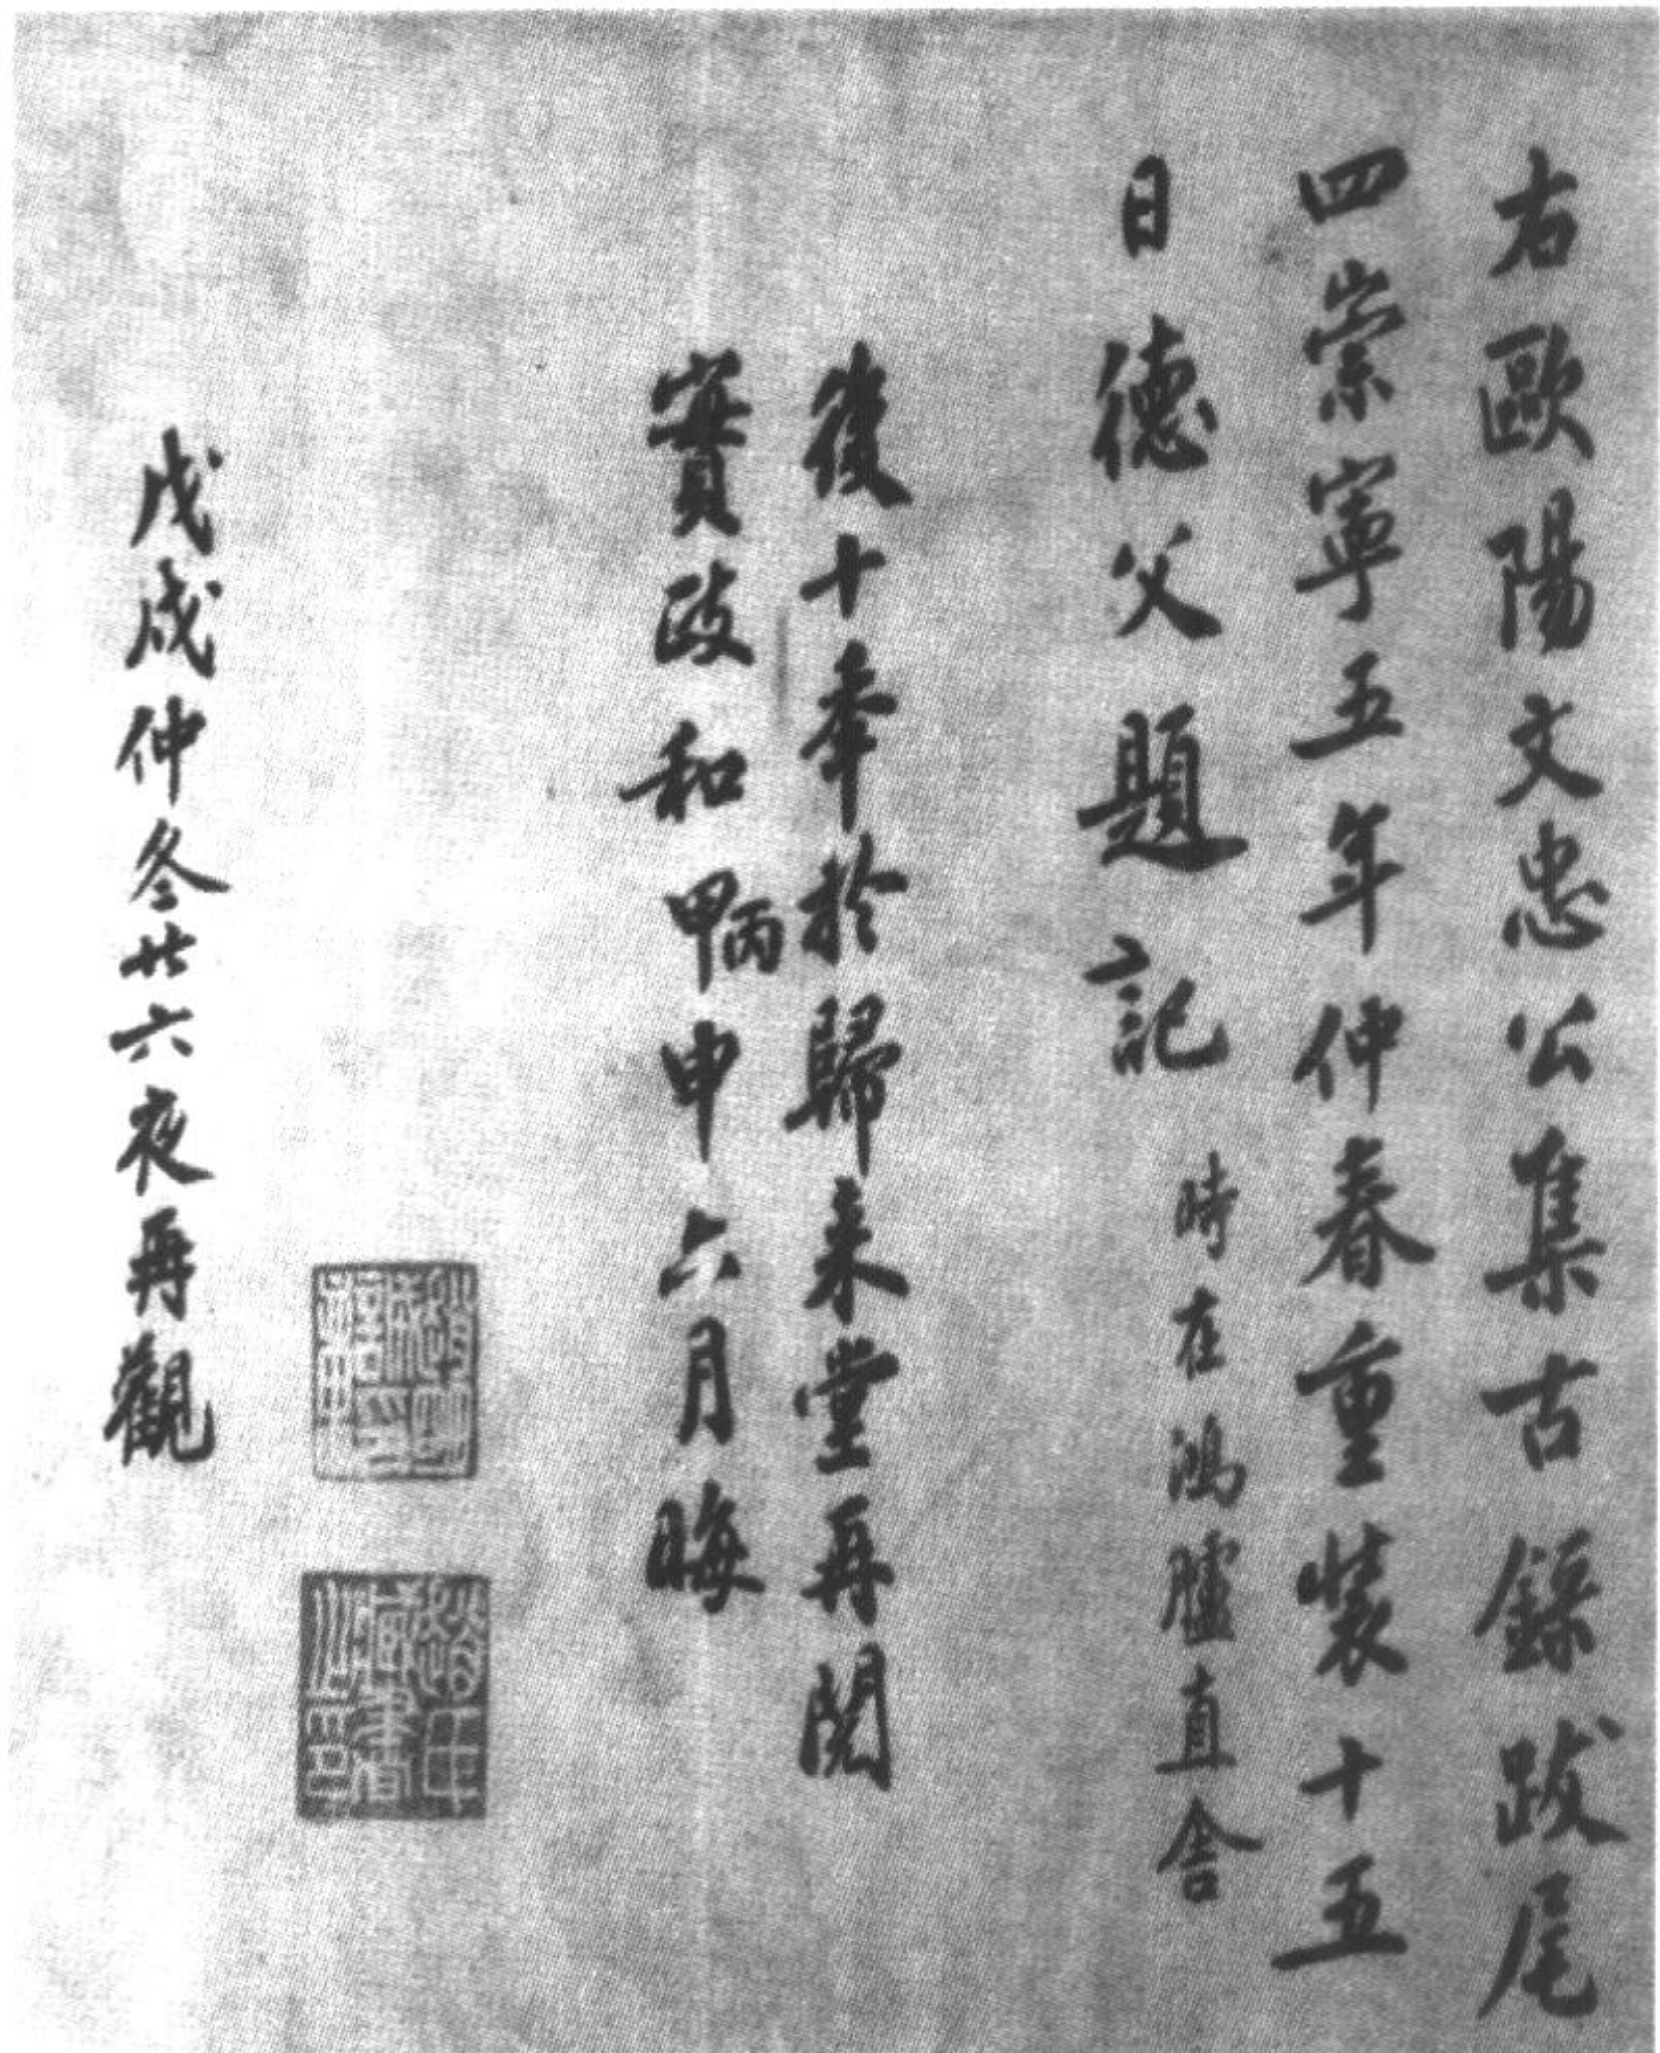 右歐陽文忠公集古錄跋尾
四崇寧五年仲春重裝十五
日德父題記
時在鴻臚直舍
後十年於歸来堂再閱
實政和甲丙申六月晦
戊戌仲冬廿六夜再觀